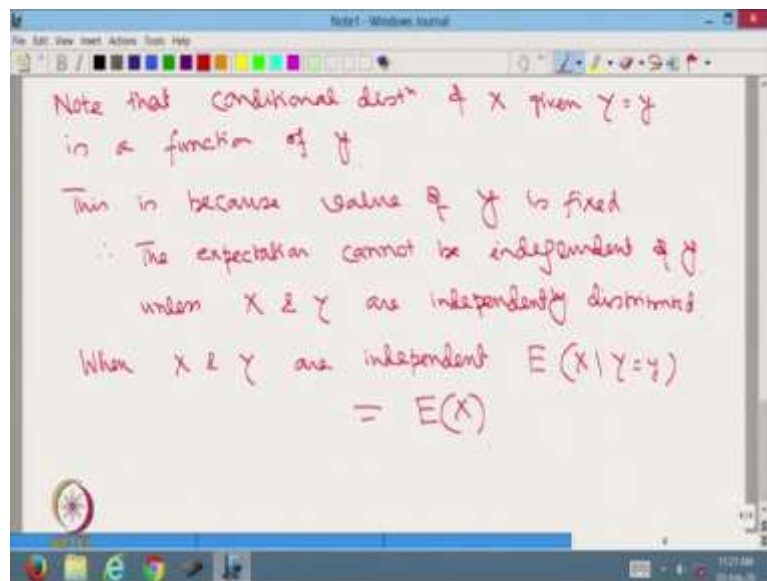 Note1 - Windows Journal
File Edit View Insert Actions Tools Help
Note that conditional distn of X given Y = y
is a function of y
This is because value of y is fixed
∴ The expectation cannot be independent of y
unless X & Y are independently distributed
When X & Y are independent E(X|Y=y)
= E(X)
11:21 AM